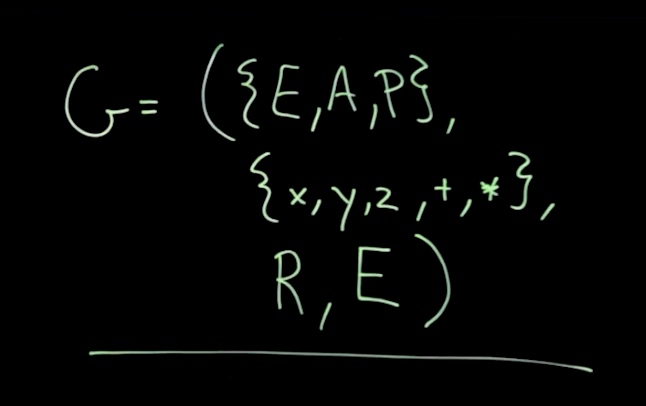 G = ({E, A, P},
{x, y, z, +, *},
R, E)